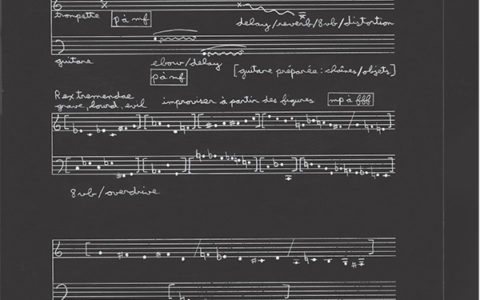 trompette p à mf delay/reverb/8vb/distortion
guitare ebow/delay [guitare préparée: chaînes/objets]
p à mf
Rex tremendae
grave, lourd, evil improviser à partir des figures mp à fff
8vb/overdrive